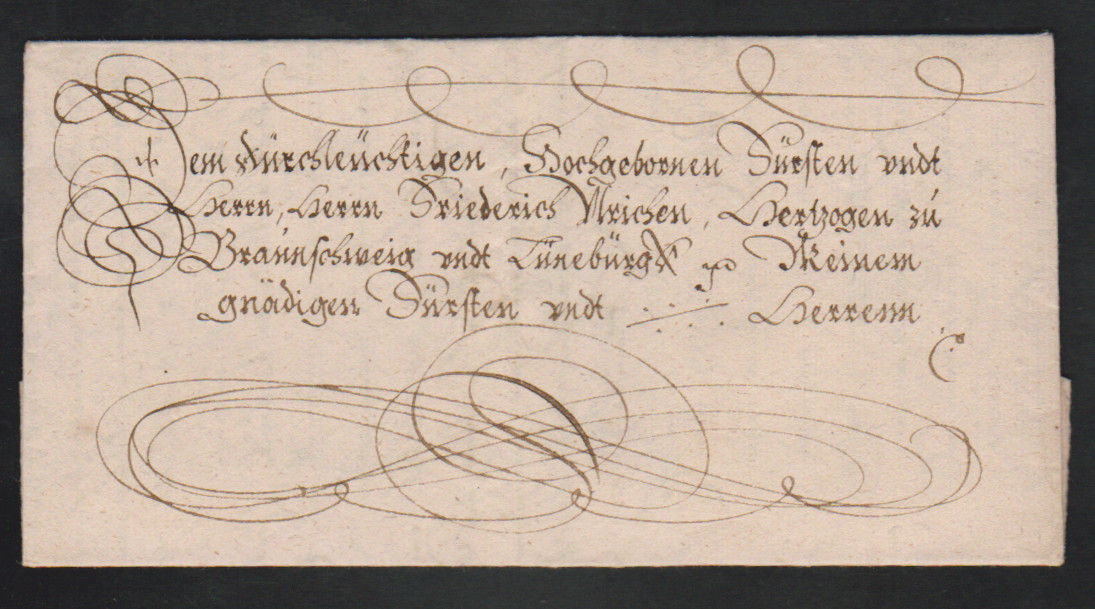 Dem Dürchleüchtigen, Hochgebornen Fürsten vndt
Herrn, Herrn Friederich Vlrichen, Hertzogen zú
Braúnschweig vndt Lünebürgk Meinem
gnädigen Fürsten vndt Herrenn